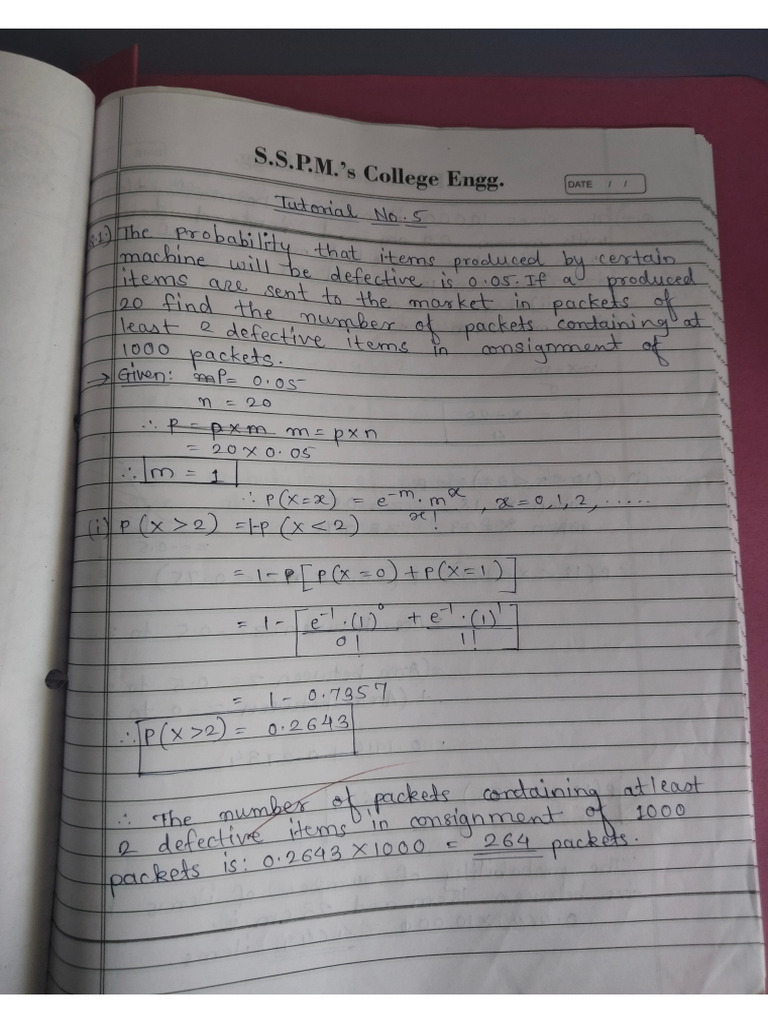 S.S.P.M.'s College Engg.
DATE / /
Tutorial No. 5
1.) The probability that items produced by certain
machine will be defective is 0.05. If a produced
items are sent to the market in packets of
20 find the number of packets containing at
least 2 defective items in consignment of
1000 packets.
→ Given: P = 0.05
n = 20
∴ P = p×m m = p×n
= 20 × 0.05
∴ m = 1
∴ P(X=x) = e^-m · m^x / x! , x = 0,1,2, ......
(i) P(X>2) = 1-P(X<2)
= 1-P[P(X=0) + P(X=1)]
= 1- [e^-1 · (1)^0 / 0! + e^-1 · (1)^1 / 1!]
= 1 - 0.7357
∴ P(X>2) = 0.2643
∴ The number of packets containing atleast
2 defective items in consignment of 1000
packets is: 0.2643 × 1000 = 264 packets.